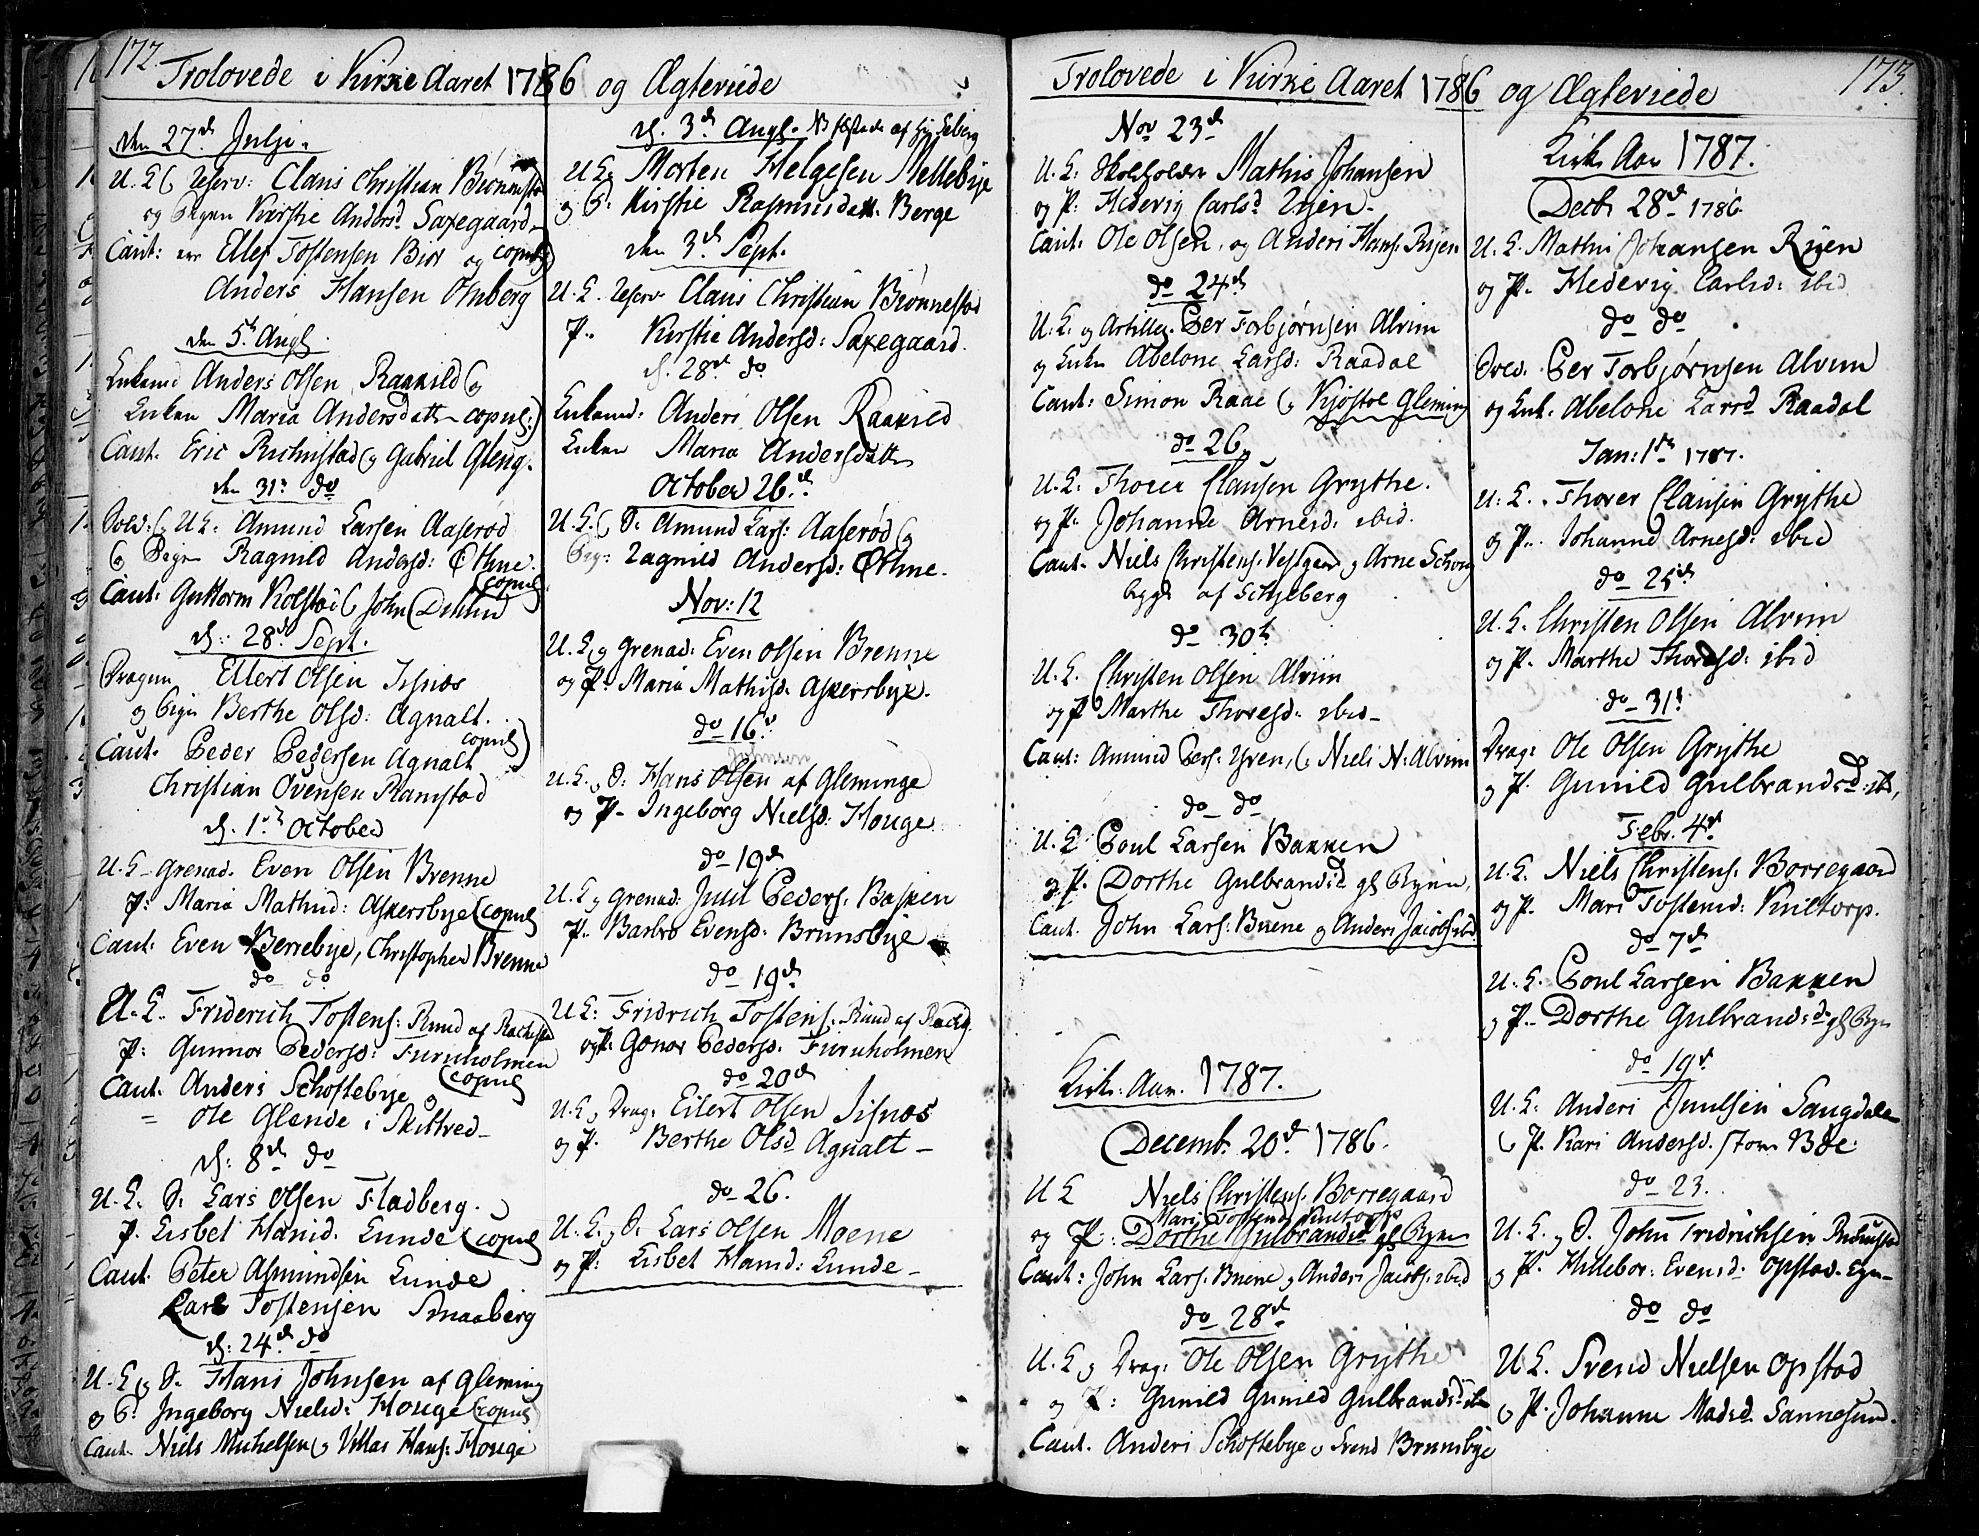 172
Trolovede i Kirke Aaret 1786 og Ægteviede
den 27d Julji.
U. C. Reserv: Claus Christian Brønnestad
og Pigen Kirstie Andersd. Saxegaard
Caut: er Ellef Tostensen Bior og copul
Anders Hansen Ornberg
den 5t Augt.
Enkemd Anders Olsen Raakild og
Enken Maria Andersdatt copul:
Caut. Eric Ruhustad og Gabriel Gleng.
den 31t do
Sold: og U. C. Amund Larsen Aaserød
og Pigen Ragnild Andersd: Othne. copul
Caut. Guttorm Kolstad og John Dehlid
d. 28d Sept.
Dragun Ellert Olsen Isnæs
og Pigen Berthe Olsd: Agnalt. copul
Caut. Peder Pedersen Agnalt
Christian Ovensen Ramstad
d. 1ste October
U. C. grenad. Even Olsen Brenne
P: Maria Mathisd: Askersbye copul
Caut: Even Berrebye, Christopher Brenne
do do
U. C. Friderich Tostens: Rund af Rachestad
P: Gunnor Pedersd: Furuholmen copul
Caut. Anders Schoftebye og
Ole Glende i Skibtved
d: 8d do
U. C. S. Lars Olsen Fladberg.
P. Lisbet Hansd. Lunde copul
Caut. Peter Asmundsen Lunde
Carl Tostensen Smaaberg
d: 24d do
U. C. og S. Hans Johnsen af Gleming
og P. Ingeborg Nielsd: Houge copul
Caut. Niels Michelsen og Villas Hans: Houge
d. 3d Augt. NB af Eeberg
U. C. Morten Helgesen Mellebye
og P. Kirstie Rasmusdatt. Berge
den 3d Sept.
U. C. Reserv. Claus Christian Brønnestad
P. Kirstie Andersd: Saxegaard.
d. 28d do
Enkemd: Anders Olsen Raakild
Enken Maria Andersdatt
October 26d
U. C. og S. Amund Lars: Aaserød og
Pig: Ragnild Andersd: Othne.
Nov: 12
U. C. og grenad: Even Olsen Brenne
og P: Maria Mathisd. Askersbye.
do 16d
Johnsen
U. C. og S: Hans Olsen af Gleminge
og P. Ingeborg Nielsd: Houge
do 19d
U. C. og grenad: Juul Peders: Basken
P. Barbro Evensd. Brunsbye
do 19d
U. C: Fridrich Tostens. Rund af Radg
og P: Gonor Pedersd. Furuholmen
do 20d
U. C. og Drag: Eilert Olsen Isnæs
og P. Berthe Olsd Agnalt
do 26.
U. C. og S. Lars Olsen Moene
og P: Lisbet Hansd: Lunde
Trolovede i Kirke Aaret 1786 og Ægteviede
173.
Nov 23d
U. C. Skoleholder Mathis Johansen
og P: Hedevig Carlsd. Ryen
Caut. Ole Olsen, og Anders Hans: Ryen
do 24d
U. C. og Artillez. Per Torbjørnsen Alvim
og Enken Abelone Larsd: Raadal
Caut: Simon Raae og Kjøstol Gleming
do 26
U. C: Thorer Clausen Grythe.
og P. Johanne Arnesd: ibid.
Caut. Niels Christens: Vestgaard og Arne Schou
bygd af Schjeberg
do 30t
U. C. Christen Olsen Alvim
og P Marthe Thoresd: ibid
Caut: Amund Pers: Yven, og Niels N: Alvim
do do
U. C. Poul Larsen Bakken
og P. Dorthe Gulbrandsd gl Ryen
Caut. John Lars: Buene og Anders Jacobs ibd
Kirk: Aar. 1787.
Decemb. 20d 1786.
U C Niels Christens. Borregaard
Mari Tostensd. Knetorp
og P: Dorthe Gulbrandsd gl Ryen
Caut: John Lars: Buene og Anders Jacobs. ibid
do 28d
U. C og Drag: Ole Olsen Grythe
og P: Gunild Gunild Gulbrandsd. ibm
Caut. Anders Schoftebye og Svend Brunsbye
Kirke Aar 1787.
Decb. 28d 1786
U. C. Mathis Johansen Ryen
og P. Hedevig Carlsd: ibid
do do
Sold. Per Torbjørnsen Alvim
og Enk. Abelone Larsd Raadal
Jan: 1ste 1787.
U. C. Thorer Clausen Grythe
og P. Johanne Arnesd: ibid
do 25d
U. C. Christen Olsen Alvim
og P. Marthe Thoresd: ibid
do 31t
Drag: Ole Olsen Grythe
og P. Gunild Gulbrandsd. ibd,
Febr. 4d
U. C. Niels Christens. Borregaard
og P. Mari Tostensd: Knetorp.
do 7d
U. C. Poul Larsen Bakken
og P. Dorthe Gulbrandsd. gl Ryen
do 19d
U. C. Anders Juulsen Laugdale
og P. Kari Andersd. store Bøe.
do 23.
U. C. og S. John Fridrichsen Ruhustad
og P. Hillebor: Evensd. Opstad. Eyen
do do
U. C. Svend Nielsen Opstad
og P. Johanne Madsd. Sannesund.